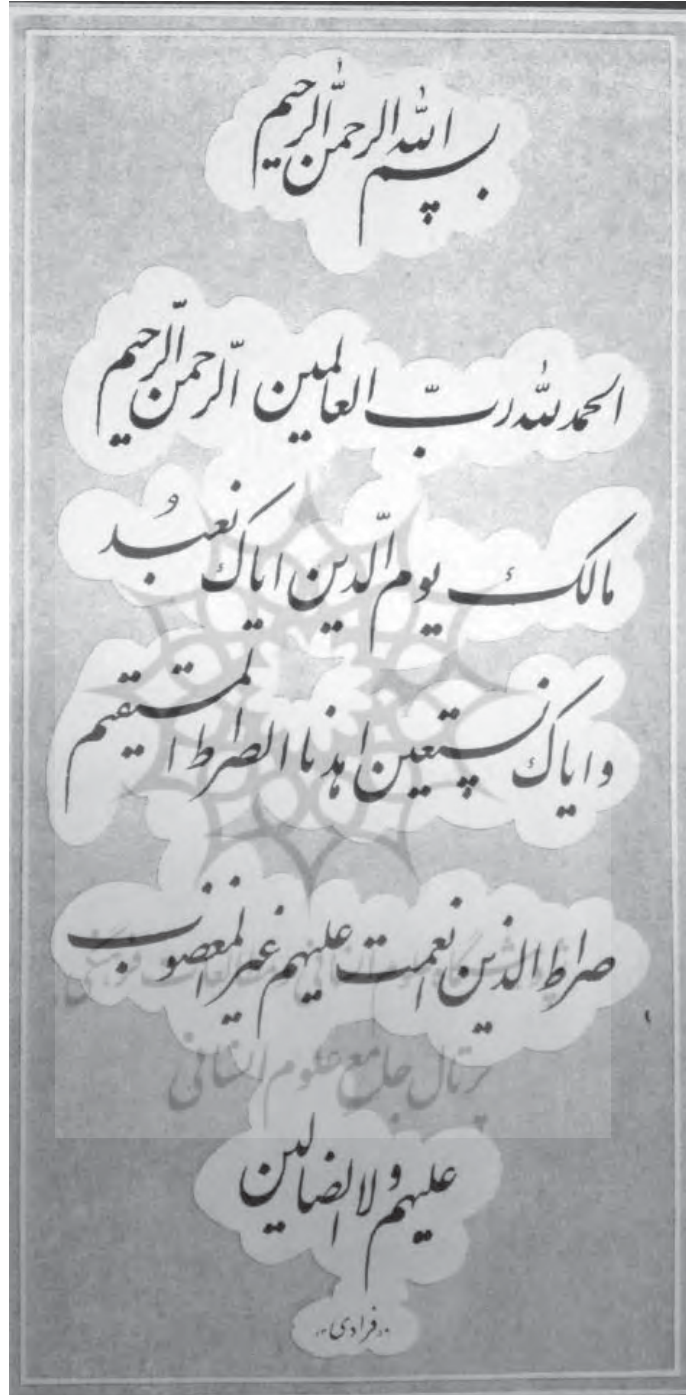 بسم الله الرحمن الرحیم
الحمد لله ربّ العالمین الرّحمن الرّحیم
مالک یوم الدّین ایاک نعبدُ
و ایاک نستعین اهدنا الصراط المستقیم
صراط الذین انعمت علیهم غیر المغضوب
پژوهشگاه علوم انسانی و مطالعات فرهنگی
پرتال جامع علوم انسانی
علیهم و لا الضالین
فرادی